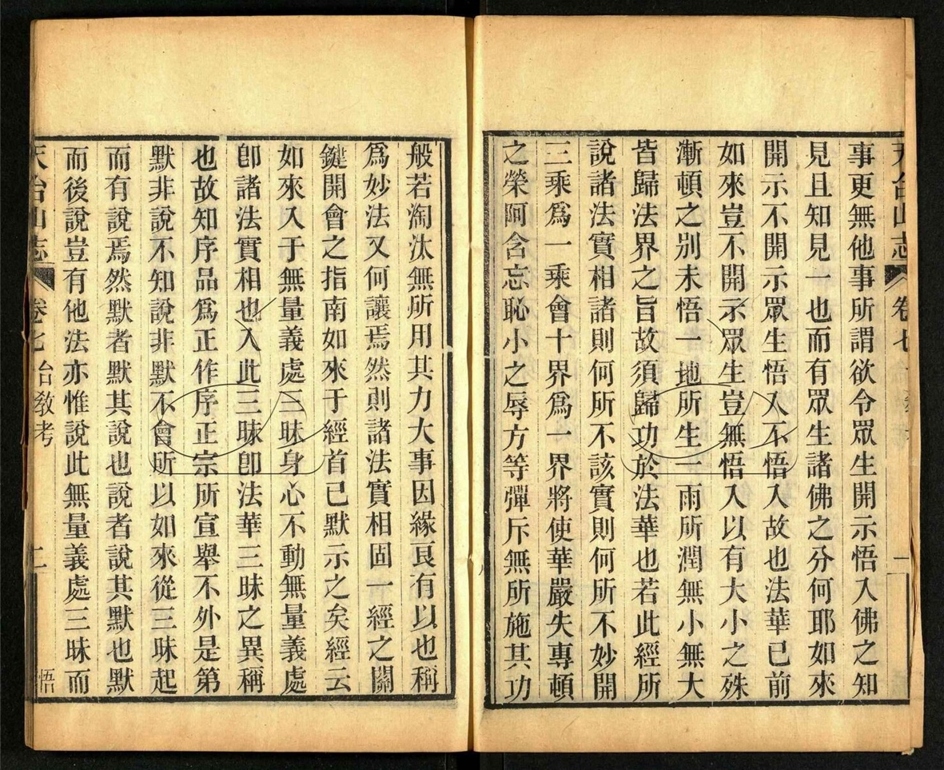 天台山志 卷七
事更無他事所謂欲令眾生開示悟入佛之知
見且知見一也而有眾生諸佛之分何耶如來
開示不開示眾生悟入不悟入故也法華已前
如來豈不開示眾生豈無悟入以有大小之殊
漸頓之別未悟一地所生一雨所潤無小無大
皆歸法界之旨故須歸功於法華也若此經所
說諸法實相諸則何所不該實則何所不妙開
三乘爲一乘會十界爲一界將使華嚴失專頓
之榮阿含忘恥小之辱方等彈斥無所施其功
般若淘汰無所用其力大事因緣良有以也稱
爲妙法又何讓焉然則諸法實相固一經之關
鍵開會之指南如來于經首已默示之矣經云
如來入于無量義處三昧身心不動無量義處
卽諸法實相也入此三昧卽法華三昧之異稱
也故知序品爲正作序正宗所宣舉不外是第
默非說不知說非默不會所以如來從三昧起
而有說焉然默者默其說也說者說其默也默
而後說豈有他法亦惟說此無量義處三昧而
天台山志 卷七 台教考 二 悟